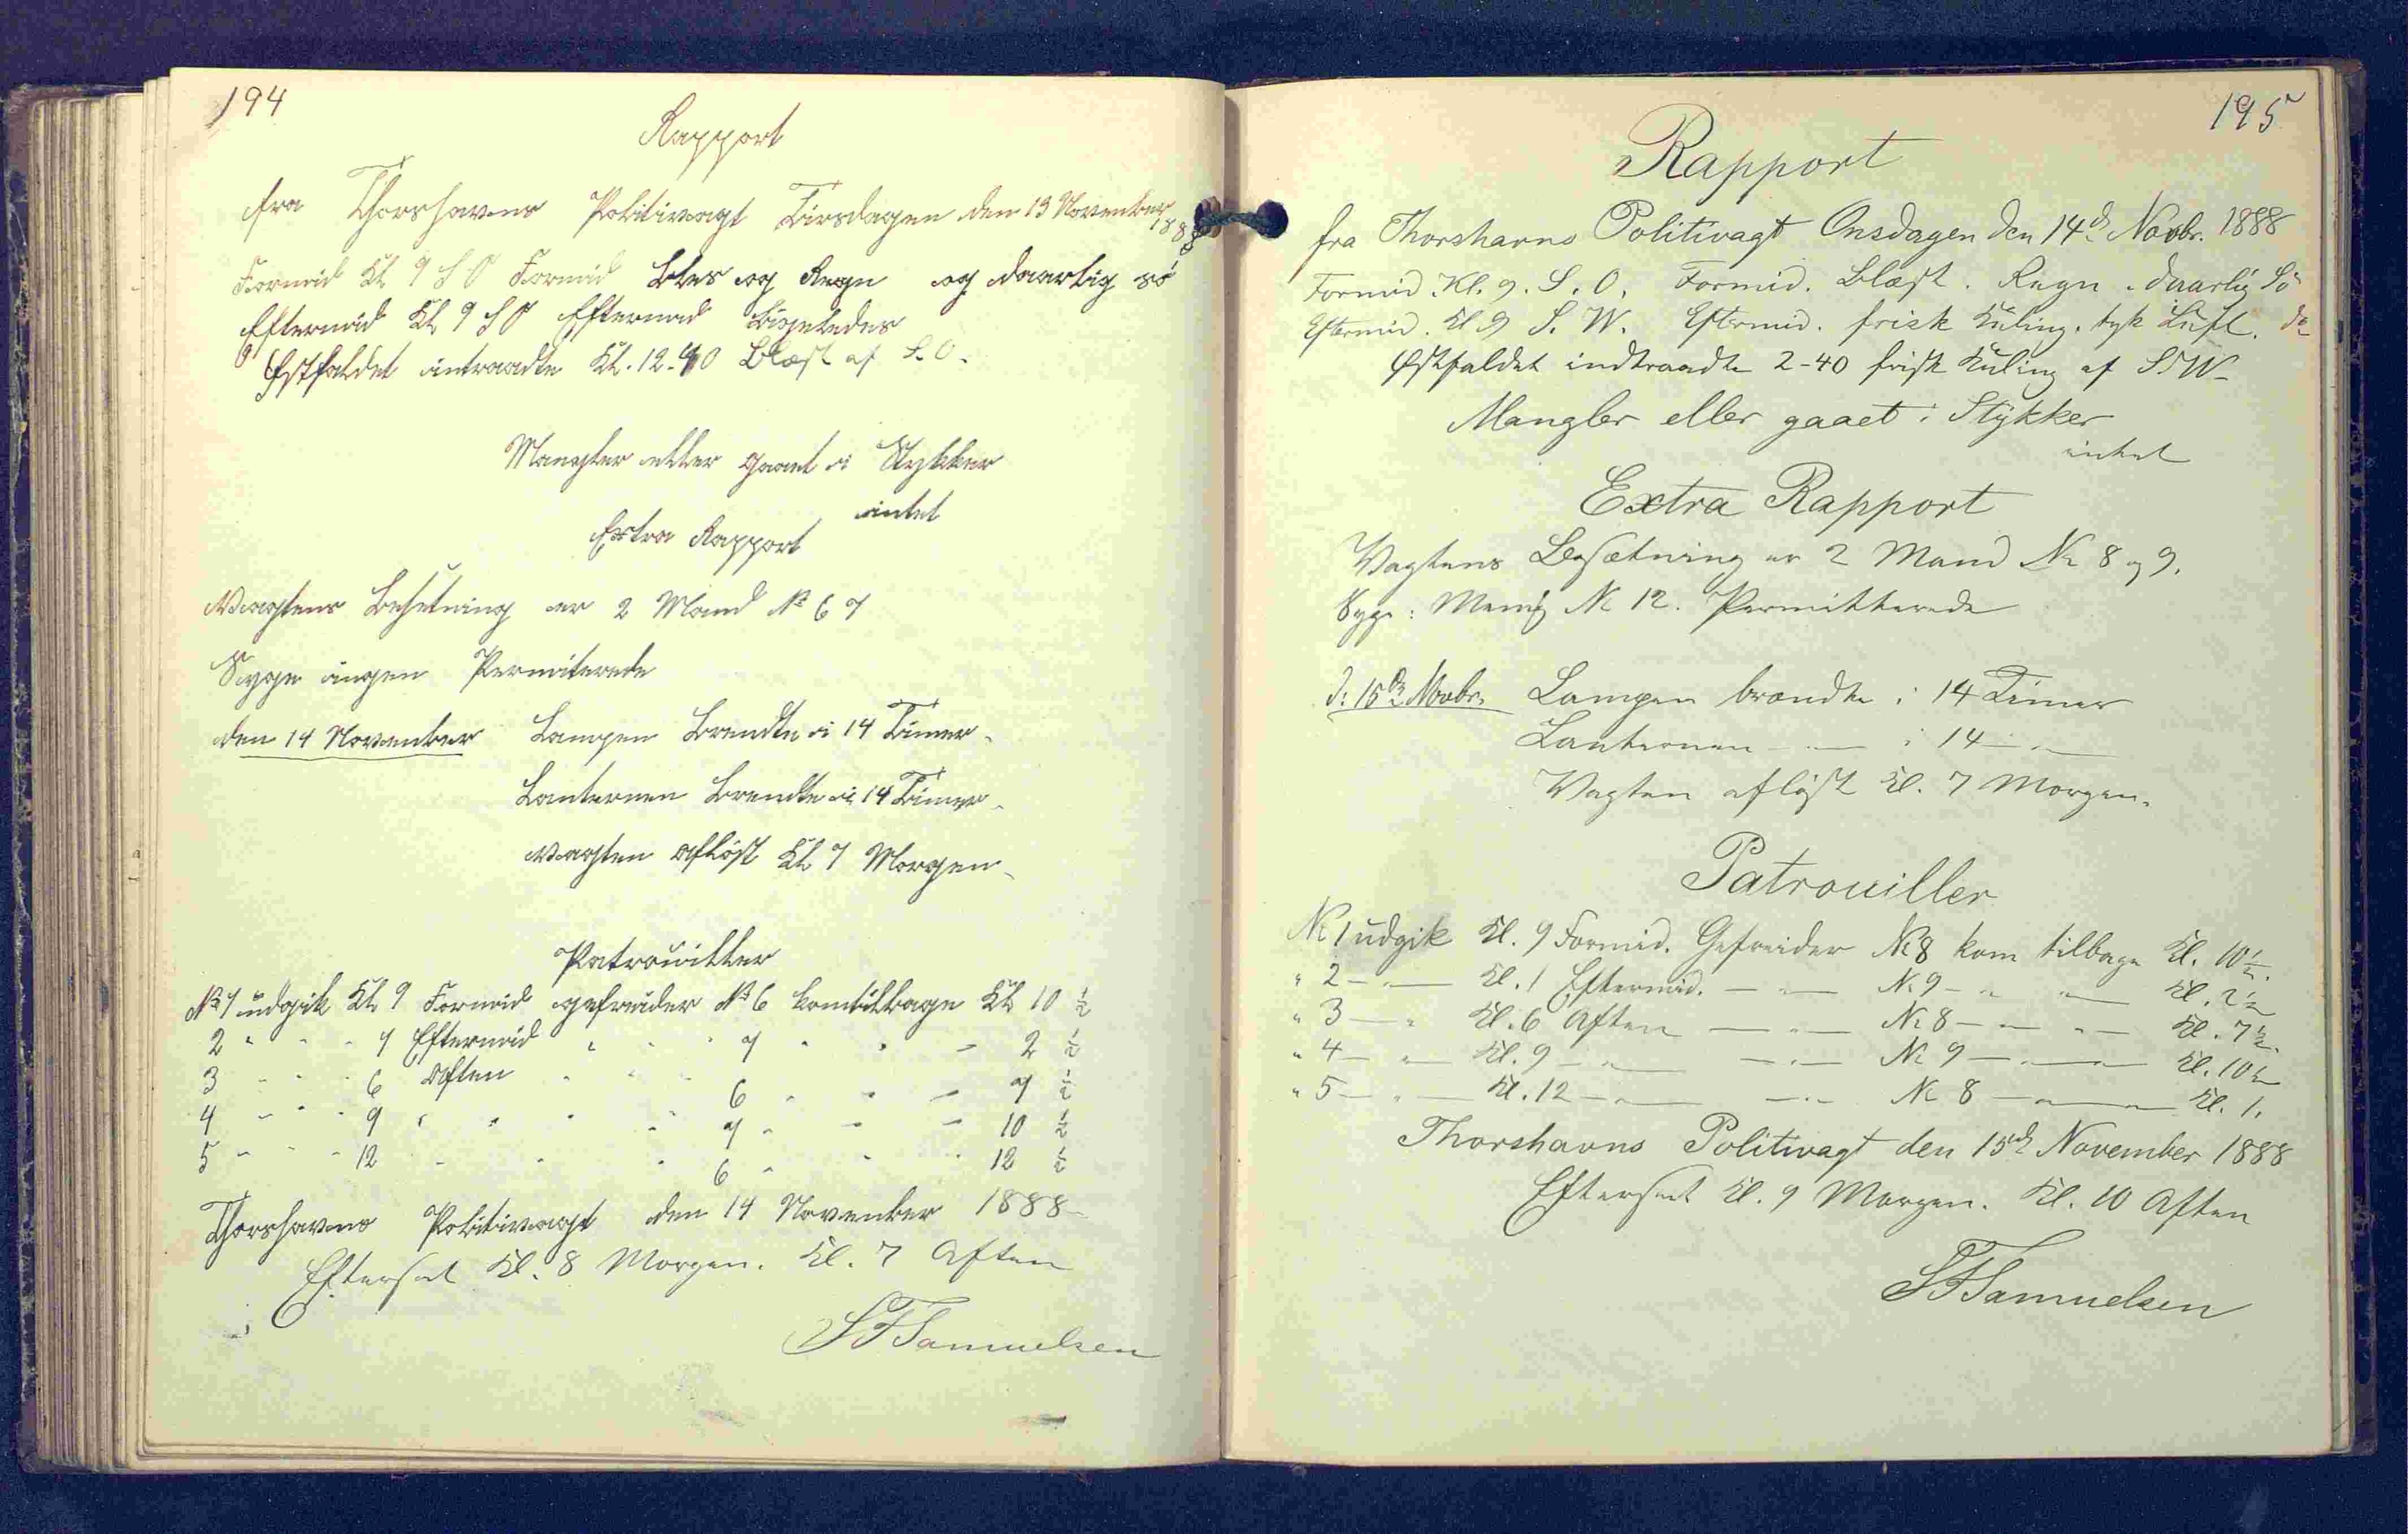 194
Rapport
fra Thorshavns Politivagt Tirsdagen den 13 November
1888
Formid Kl 9 S O Formid Bles og Regn og daarlig sö
Eftermid Kl 9 S O Eftermid Ligeledes
Østfaldet intraadte Kl. 12-40 Blæst af S.O.
Mangler eller gaaet i Stykker
intet
Extra Rapport
Vagtens Besetning er 2 Mand No 6 7
Syge ingen Permiterede
den 14 November Lampen Brendte i 14 Timer
Lanternen Brendte i 14 Timer
Vagten Afløst Kl 7 Morgen
Patrouiller
No 1 udgik Kl 9 Formid gefreider No 6 kom tilbage Kl 10 1/2
2 " " " 1 Eftermid " " " 7 " " " 2 1/2
3 " " " 6 Aften " " " 6 " " " 7 1/2
4 " " " 9 " " " " 7 " " " 10 1/2
5 " " " 12 " " " 6 " " " 12 1/2
Thorshavns Politivagt den 14 November 1888
Efterset Kl. 8 Morgen. Kl. 7 Aften
SFSamuelsen
195
Rapport
fra Thorshavns Politivagt Onsdagen den 14d Novbr. 1888
Formid. Kl. 9. S. O. Formid. Blæst. Regn. daarlig Sö
Eftermid. Kl 9 S. W. Eftermid. frisk Kuling. tyk Luft. do
Østfaldet indtraadte 2-40 frisk Kuling af SSW
Mangler eller gaaet i Stykker
intet
Extra Rapport
Vagtens Besætning er 2 Mand No 8 og 9.
Syge: Menig No 12. Permitterede
d: 15de Novbr. Lampen brændte i 14 Timer
Lanternen — " — i 14 — " —
Vagten afløst Kl. 7 Morgen.
Patrouiller
No 1 udgik Kl. 9 Formid. Gefreider No 8 kom tilbage Kl. 10 1/2.
" 2 — " — Kl. 1 Eftermid. — " — No 9 — " — " — Kl. 2 1/2
" 3 — " Kl. 6 Aften — " — No 8 — " — " — Kl. 7 1/2.
" 4 — " — Kl. 9 — " — — " — No 9 — " — " — Kl. 10 1/2
" 5 — " — Kl. 12 — " — — " — No 8 — " — " — Kl. 1.
Thorshavns Politivagt den 15d November 1888
Efterset Kl. 9 Morgen. Kl. 10 Aften
SFSamuelsen